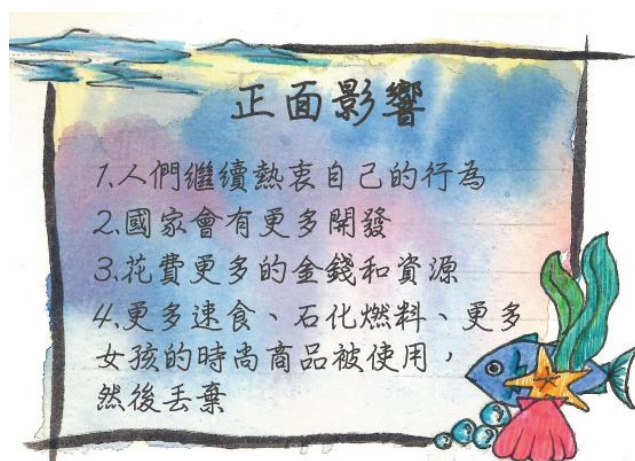 正面影響
1.人們繼續熱衷自己的行為
2.國家會有更多開發
3.花費更多的金錢和資源
4.更多速食、石化燃料、更多
女孩的時尚商品被使用，
然後丟棄